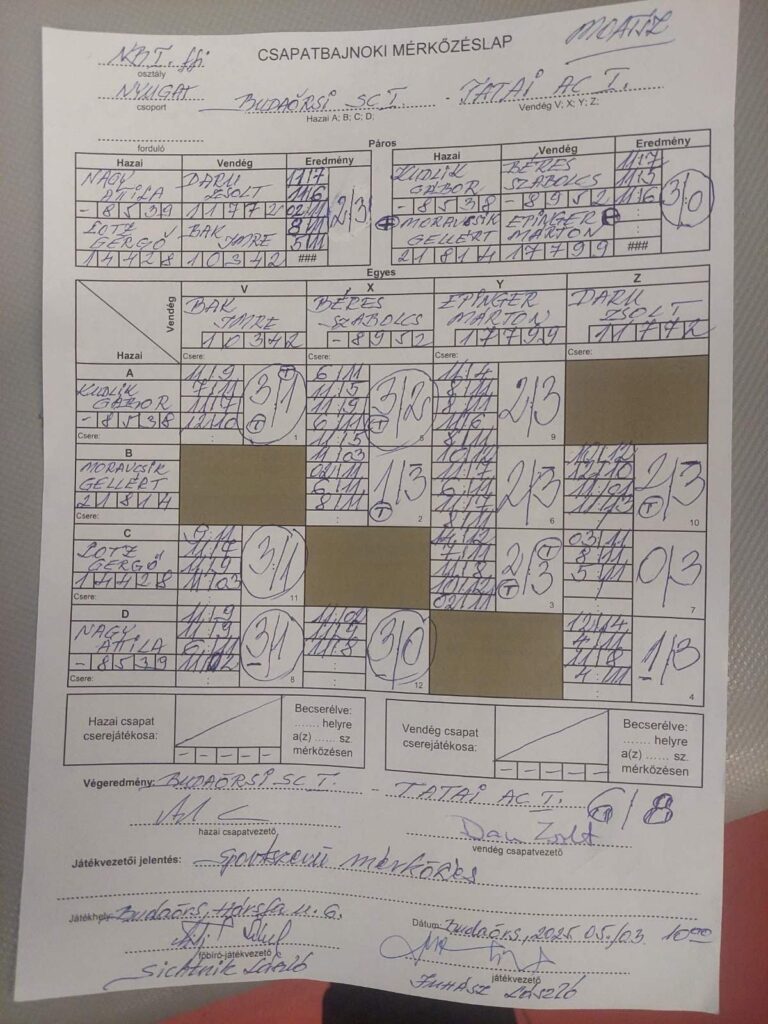 MOATSZ
NB I. ffi
CSAPATBAJNOKI MÉRKŐZÉSLAP
osztály
NYUGAT
BUDAÖRSI SC I. - TATAI AC I.
csoport
Hazai A; B; C; D;
Vendég V; X; Y; Z:
forduló
Páros
Hazai Vendég Eredmény
NAGY ATTILA DARU ZSOLT
-8539 11772
LOTZ GERGŐ BAK IMRE
14428 10342 ###
11 7
11 6
02 11
8 11
5 11
2/3
Hazai Vendég Eredmény
KUDLIK GÁBOR BÉRES SZABOLCS
-8538 -8952
MORAVCSIK GELLÉRT EPINGER MÁRTON
21814 17799 ###
11 7
11 5
11 6
3/0
Egyes
V X Y Z
Vendég
BAK IMRE BÉRES SZABOLCS EPINGER MÁRTON DARU ZSOLT
10342 -8952 17799 11772
Hazai
Csere: Csere: Csere: Csere:
A
KUDLIK GÁBOR
-8538
Csere:
11 9
7 11
11 7
12 10
3/1 T T 1
6 11
11 5
11 9
6 11
11 5
3/2 T 5
11 4
8 11
8 11
11 6
8 11
2/3 9
B
MORAVCSIK GELLÉRT
21814
Csere:
11 03
02 11
6 11
8 11
1/3 T 2
2/3 6
2/3 T 10
C
LOTZ GERGŐ
14428
Csere:
9 11
11 7
11 9
11 03
3/1 11
14 12
7 11
11 8
10 12
02 11
2/3 T T 3
03 11
8 11
5 11
0/3 7
D
NAGY ATTILA
-8539
Csere:
11 9
11 9
6 11
11 02
3/1 8
11 02
11 8
3/0 12
12 14
4 11
11 8
4 11
1/3 4
Hazai csapat cserejátékosa:
Becserélve:
....... helyre
a(z) ...... sz.
mérkőzésen
Vendég csapat cserejátékosa:
Becserélve:
....... helyre
a(z) ...... sz.
mérkőzésen
Végeredmény: BUDAÖRSI SC I. - TATAI AC I. 6/8
hazai csapatvezető
Daru Zsolt
vendég csapatvezető
Játékvezetői jelentés: Sportszerű mérkőzés
Játékhely: Budaörs, Hársfa u. 6.
Dátum: Budaörs, 2025.05./03. 10 00
főbíró-játékvezető
játékvezető
Sichtnik László
JUHÁSZ László